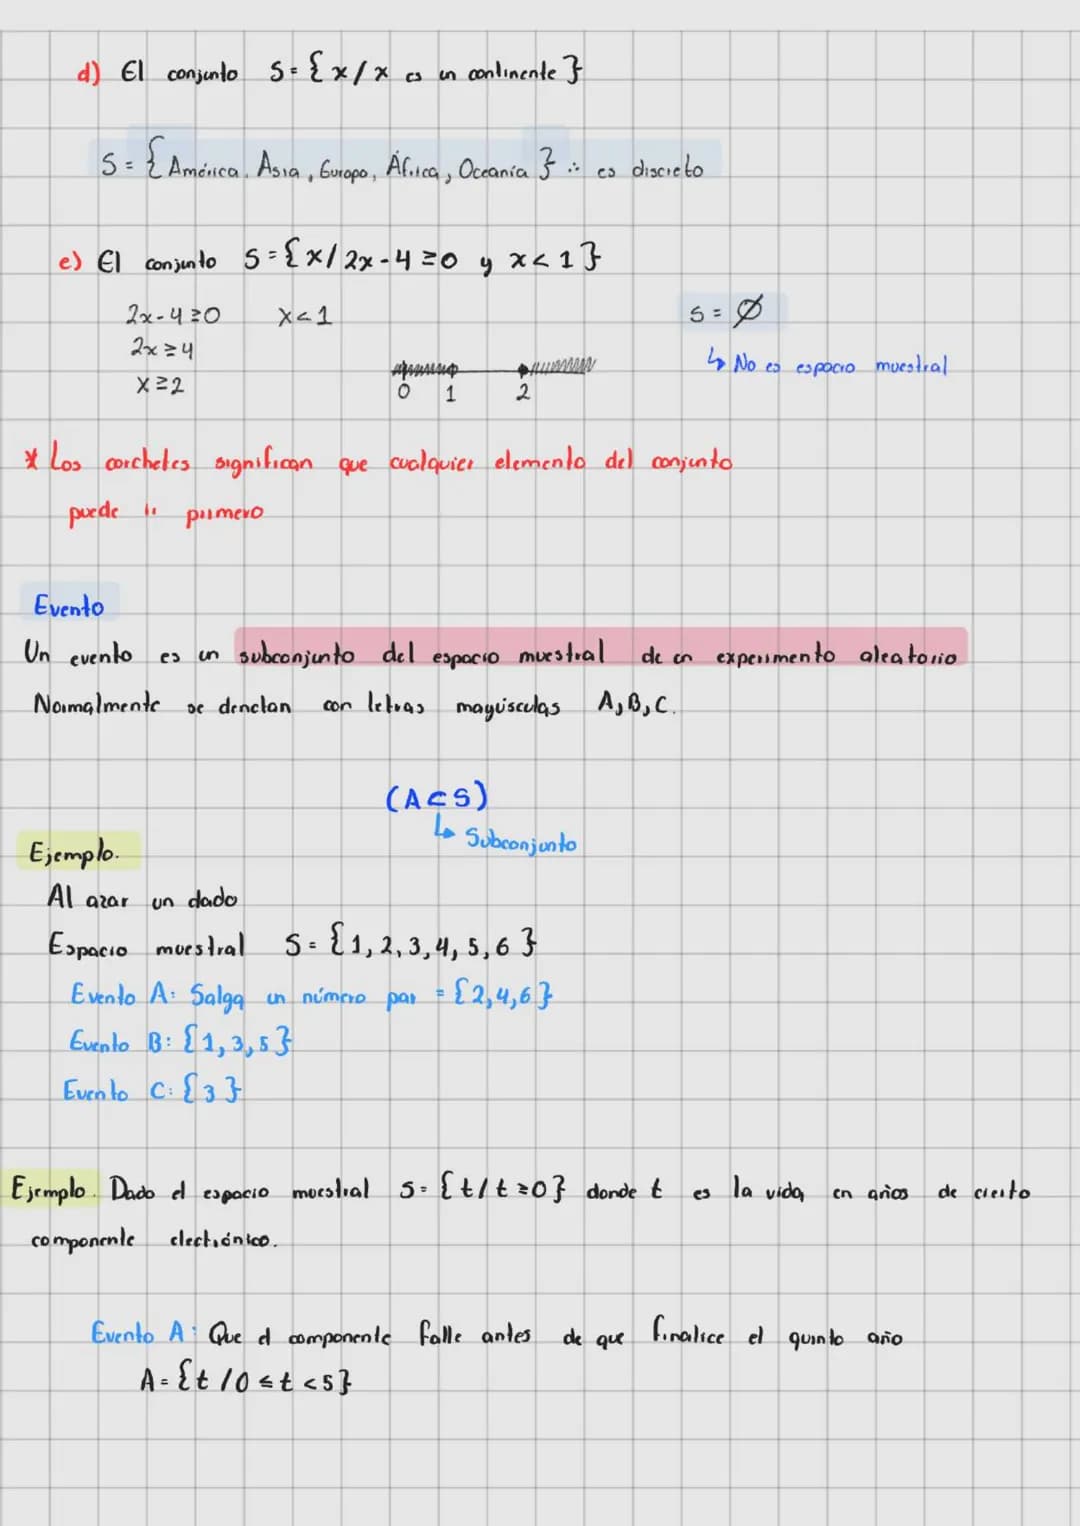 d) El conjunto S = { x / x es un continente }
S = { América, Asia, Europa, África, Oceanía } ∴ es discreto
e) El conjunto S = { x / 2x - 4 ≥ 0 y x < 1 }
2x - 4 ≥ 0 x < 1 S = ∅
2x ≥ 4 ↳ No es espacio muestral
x ≥ 2
0 1 2
* Los corchetes significan que cualquier elemento del conjunto
puede ir primero
Evento
Un evento es un subconjunto del espacio muestral de un experimento aleatorio
Normalmente se denotan con letras mayúsculas A, B, C.
(A ⊂ S)
↳ Subconjunto
Ejemplo.
Al azar un dado
Espacio muestral S = { 1, 2, 3, 4, 5, 6 }
Evento A: Salga un número par = { 2, 4, 6 }
Evento B: { 1, 3, 5 }
Evento C: { 3 }
Ejemplo. Dado el espacio muestral S = { t / t ≥ 0 } donde t es la vida, en años de cierto
componente electrónico.
Evento A: Que el componente falle antes de que finalice el quinto año
A = { t / 0 ≤ t < 5 }